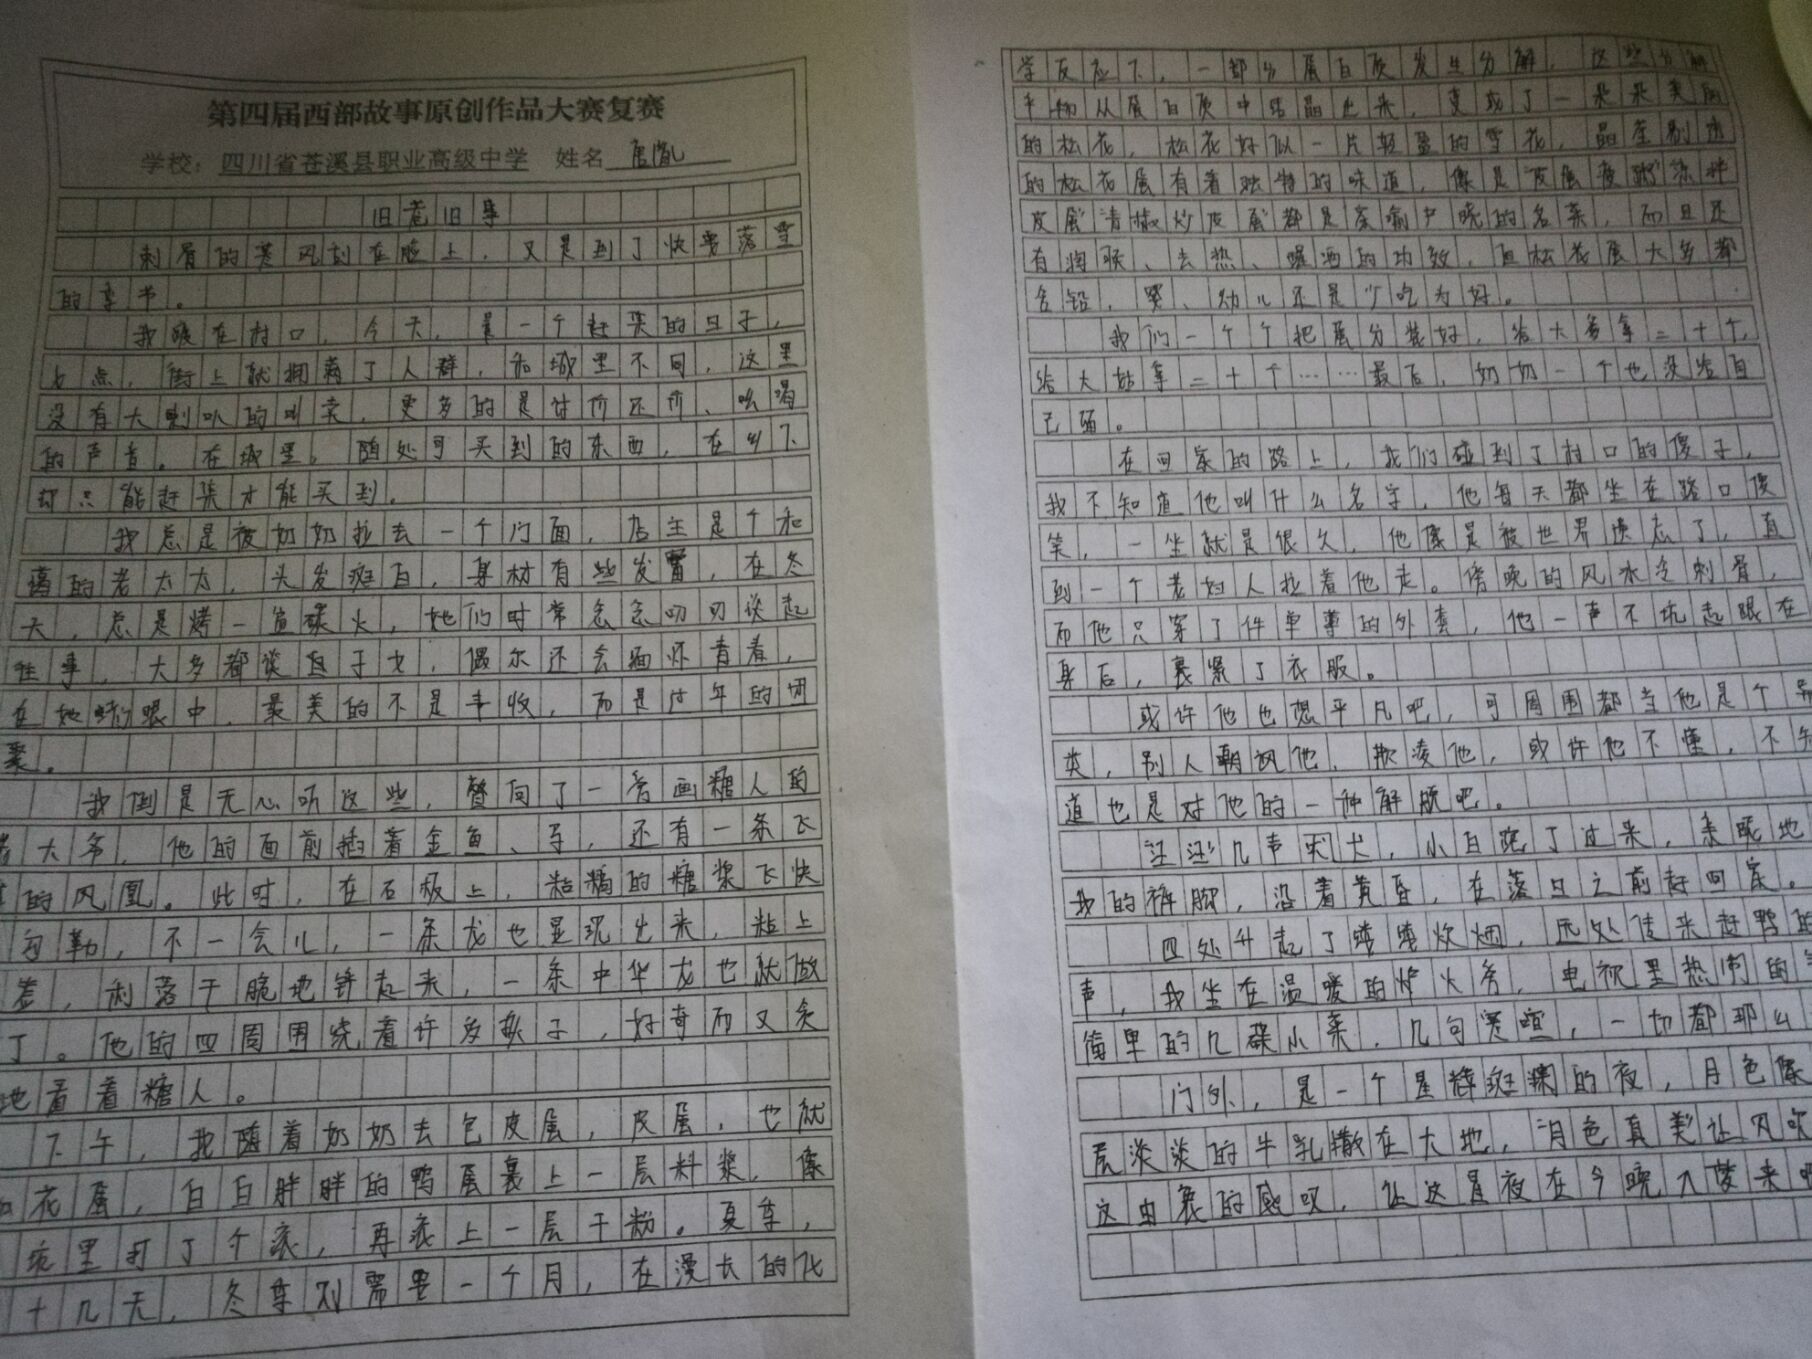 第四届西部故事原创作品大赛复赛
学校：四川省苍溪县职业高级中学 姓名
旧巷旧事
刺骨的寒风刮在脸上，又是到了快要落雪
的季节。
我暖在村口，今天，是一个赶集的日子，
七点，街上就拥满了人群，和城里不同，这里
没有大喇叭的叫卖，更多的是讨价还价、吆喝
的声音。在城里，随处可买到的东西，在乡下
却只能赶集才能买到。
我总是被奶奶拉去一个门面，店主是个和
蔼的老太太，头发斑白，身材有些发富，在冬
天，总是烤一盆碳火，她们时常念念叨叨谈起
往事，大多都谈自子女，偶尔还会缅怀青春，
在她们眼中，最美的不是丰收，而是过年的团
聚。
我倒是无心听这些，瞥向了一旁画糖人的
老大爷，他的面前插着金鱼、马，还有一条飞
的凤凰。此时，在石板上，粘稠的糖浆飞快
勾勒，不一会儿，一条龙也显现出来，粘上
签，利落干脆地铲起来，一条中华龙也就做
了。他的四周围绕着许多孩子，好奇而又贪
地看着糖人。
下午，我随着奶奶去包皮蛋，皮蛋，也就
花蛋，白白胖胖的鸭蛋裹上一层料浆，像
坑里打了个滚，再滚上一层干粉。夏季，
十几天，冬季则需要一个月，在漫长的化
学反应下，一部分蛋白质发生分解，这些分解
产物从蛋白质中结晶出来，变成了一朵朵美丽
的松花，松花好似一片轻盈的雪花，晶莹剔透
的松花蛋有着独特的味道，像是“皮蛋瘦粥”“凉拌
皮蛋”“青椒炒皮蛋”都是家喻户晓的名菜，而且还
有润喉、去热、醒酒的功效，但松花蛋大多都
含铅，婴、幼儿还是少吃为好。
我们一个个把蛋分装好，给大爹拿二十个，
给大姑拿二十个……最后，奶奶一个也没给自
己留。
在回家的路上，我们碰到了村口的傻子，
我不知道他叫什么名字，他每天都坐在路口傻
笑，一坐就是很久，他像是被世界遗忘了，直
到一个老妇人拉着他走。傍晚的风冰冷刺骨，
而他只穿了件单薄的外套，他一声不坑起跟在
身后，裹紧了衣服。
或许他也想平凡吧，可周围都当他是个异
类，别人朝讽他，欺凌他，或许他不懂，不知
道也是对他的一种解脱吧。
“汪汪”几声哭犬，小白跑了过来，亲昵地
我的裤脚，沿着黄昏，在落日之前赶回家。
四处升起了缕缕炊烟，远处传来赶鸭的
声，我坐在温暖的炉火旁，电视里热闹的
简单的几碟小菜，几句寒暄，一切都那么
门外，是一个星辉斑斓的夜，月色像
层淡淡的牛乳撒在大地，“月色真美”让风吹
这由衷的感叹，让这星夜在今晚入梦来吧